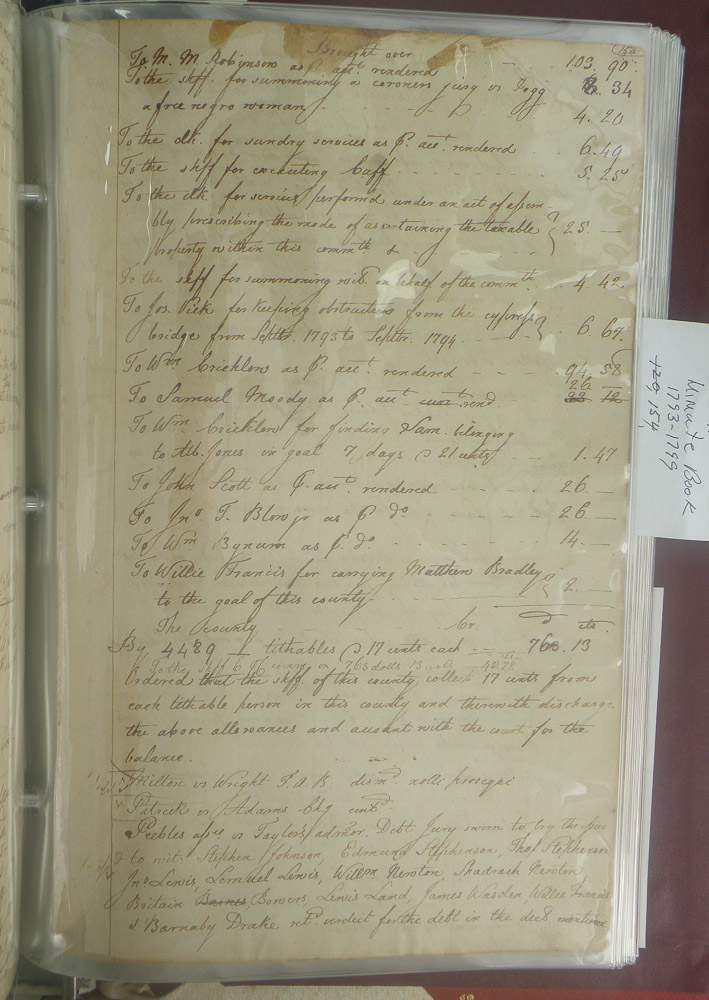 154
Brought over
To M. M. Robinson as P. acct. rendered 103. 90
To the shff. for summoning a coroners jury vs Pegg 8. 34
a free negro woman 4. 20
To the clk. for sundry services as P. acct. rendered 6. 49
To the shff for executing Cuff 5. 25
To the clk. for services performd under an act of assem-
bly prescribing the mode of ascertaining the taxable 25. —
property within this commth &
To the shff for summoning wits. on behalf of the commth. 4. 42
To Jos. Pick for keeping obstructions from the cypress
bridge from Septbr. 1793 to Septbr. 1794 6. 67.
To Wm. Crichlow as P. acct. rendered 94. 58
To Samuel Moody as P. acct. rend 26 —
To Wm Crichlow for finding Sam. belonging
to Alb. Jones in goal 7 days @ 21 cents 1. 47
To John Scott as P. acct. rendered 26 —
To Jno T. Blow jr as P. do 26 —
To Wm Bynum as P. do 14 —
To Willie Francis for carrying Matthew Bradley
to the goal of this county 2.
The county Cr. D cts.
By 4489 tithables @ 17 cents each 763. 13
To the shff 6 comn on 763 dolls 13 cents
Ordered that the shff. of this county collect 17 cents from
each tithable person in this county and therewith discharge
the above allowances and account with the court for the
balance.
Milton vs Wright T. A. B. dismd. nolli prosequi
Patrick vs Adams Chy contd.
Peebles assee vs Taylors admor. Debt. Jury sworn to try the issue
to wit: Stephen Johnson, Edmund Stephenson, Thos. Stephenson
Jno Lewis, Lemuel Lewis, Willm Newton, Shadrach Newton,
Britain Barnes Bowers, Lewis Land, James Wasden, Willie Francis
& Barnaby Drake retd. verdict for the debt in the decl. mentioned
Minute Book
1793-1799
pg 154